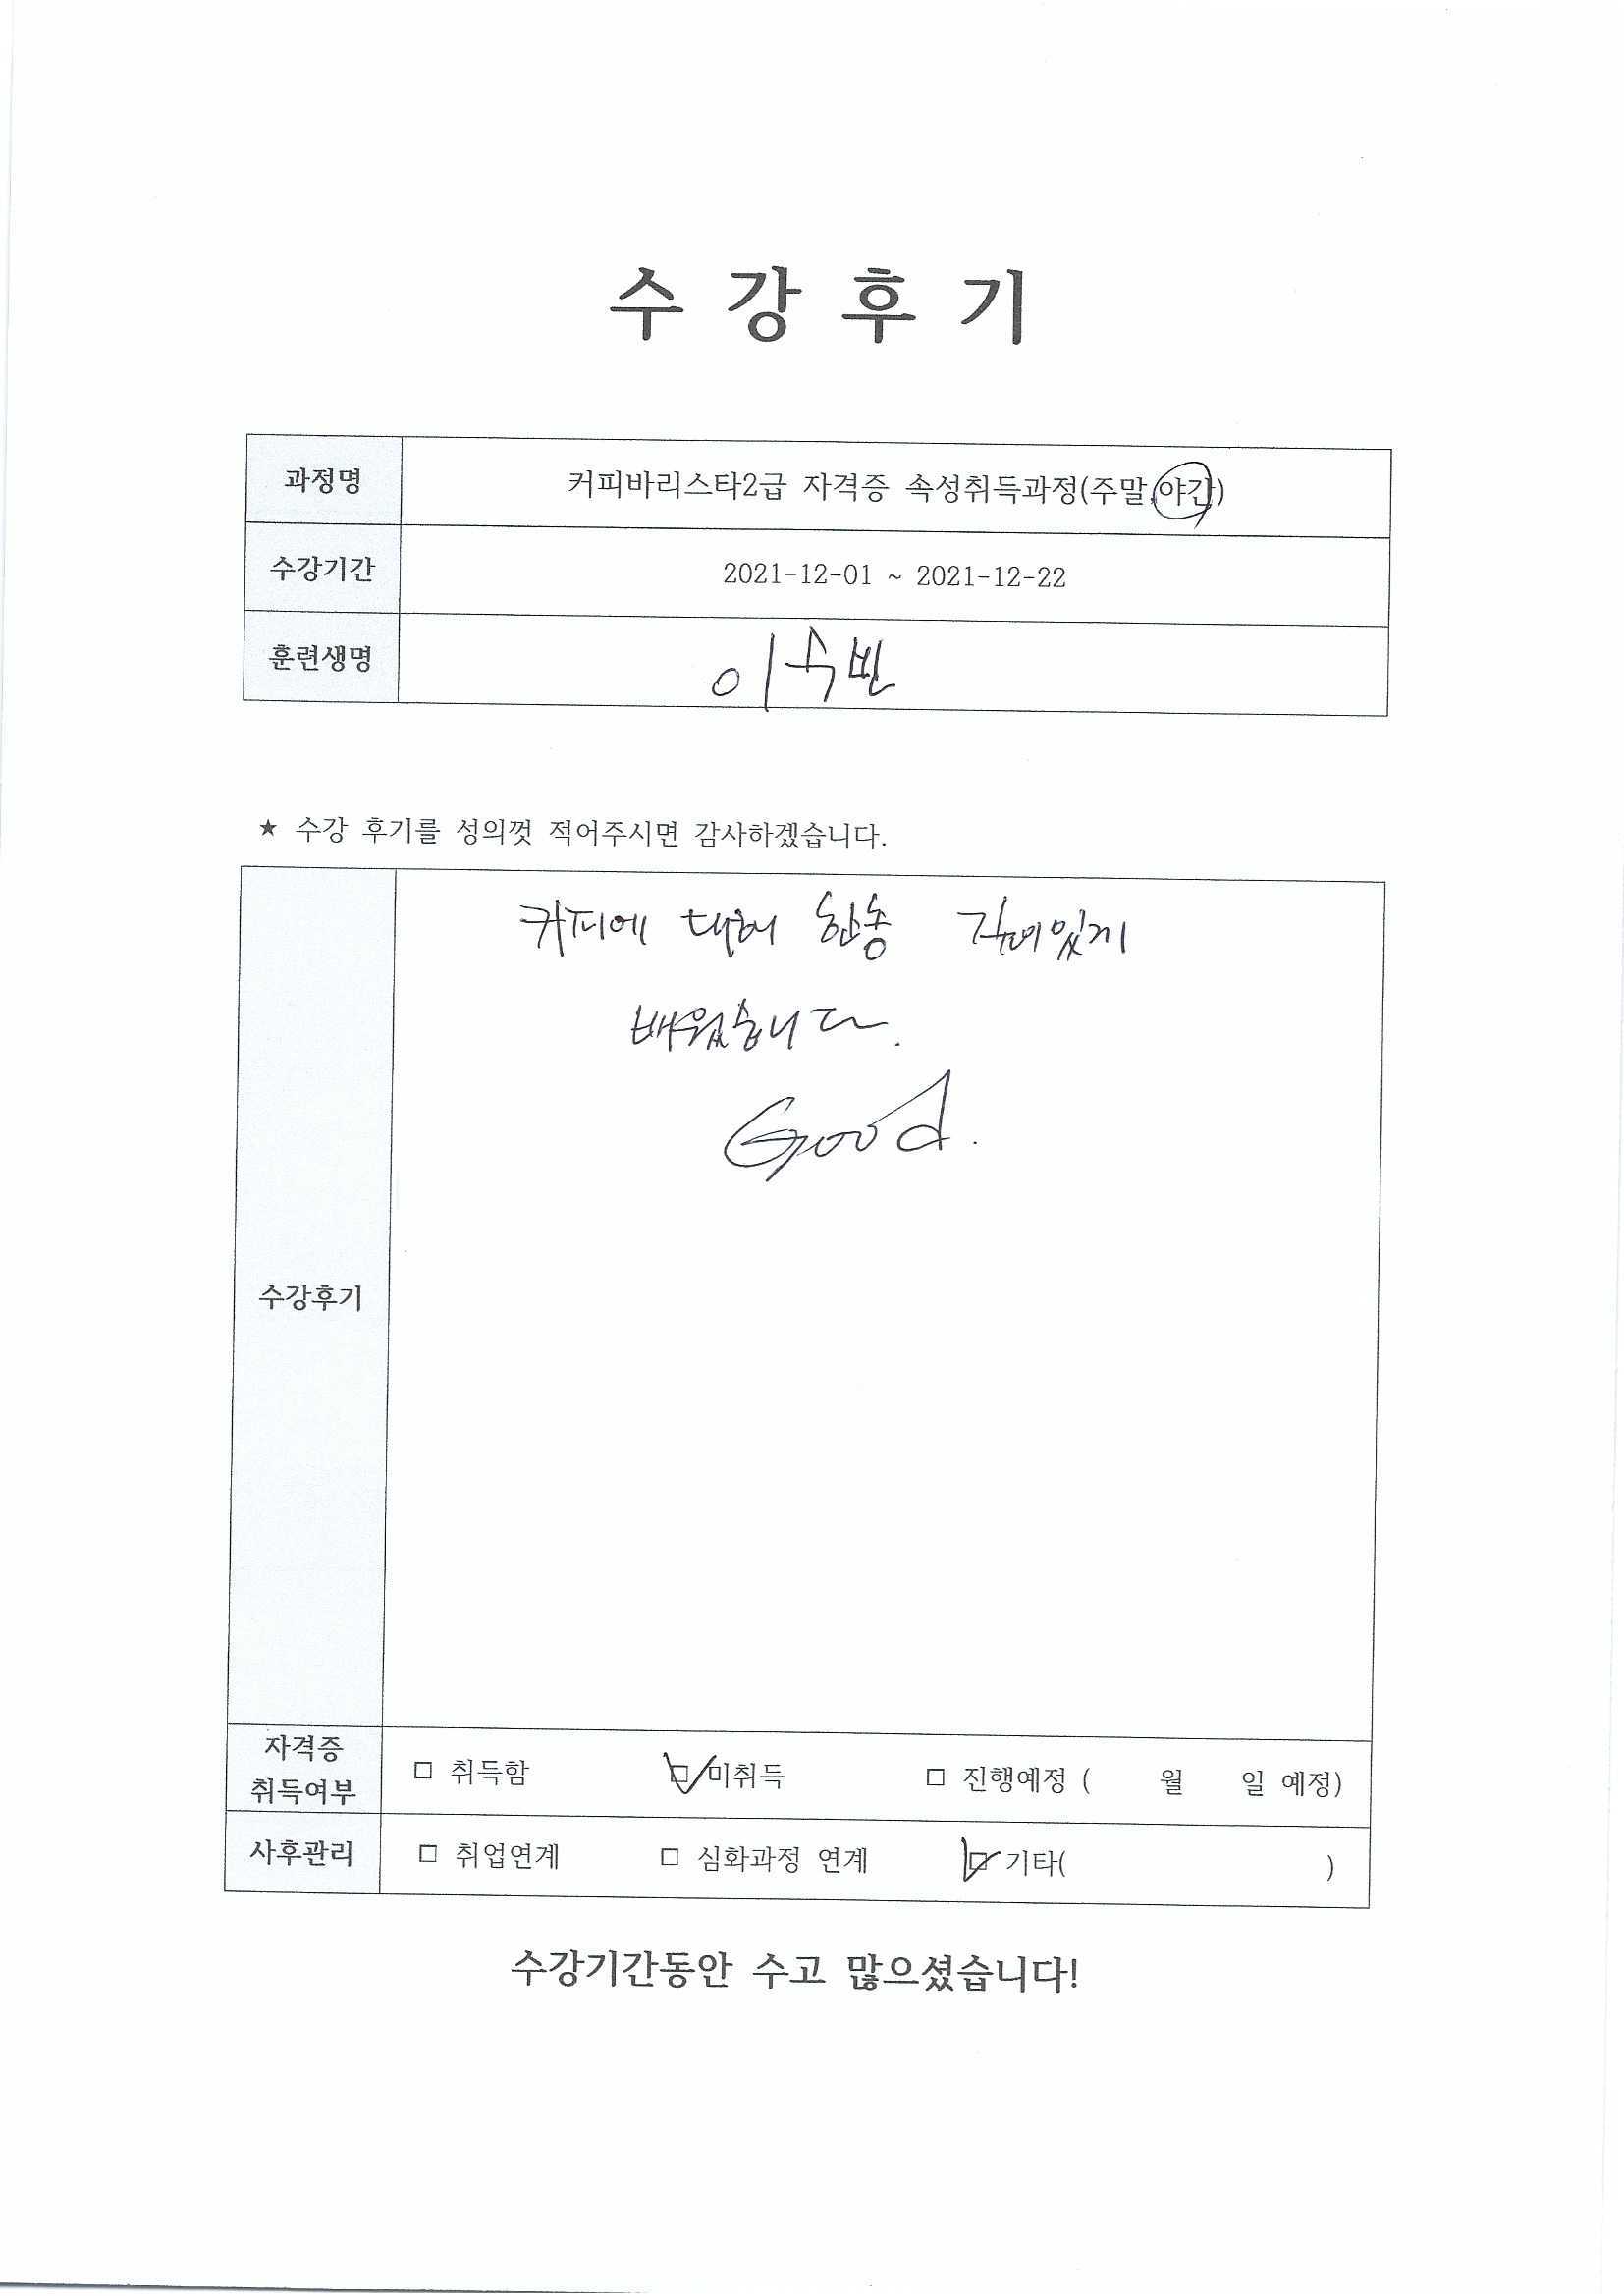 수 강 후 기
과정명 커피바리스타2급 자격증 속성취득과정(주말,야간)
수강기간 2021-12-01 ~ 2021-12-22
훈련생명 이수빈
★ 수강 후기를 성의껏 적어주시면 감사하겠습니다.
커피에 대해 한층 재미있게
배웠습니다.
Good.
수강후기
자격증
취득여부 □ 취득함 ☑ 미취득 □ 진행예정 ( 월 일 예정)
사후관리 □ 취업연계 □ 심화과정 연계 ☑ 기타( )
수강기간동안 수고 많으셨습니다!